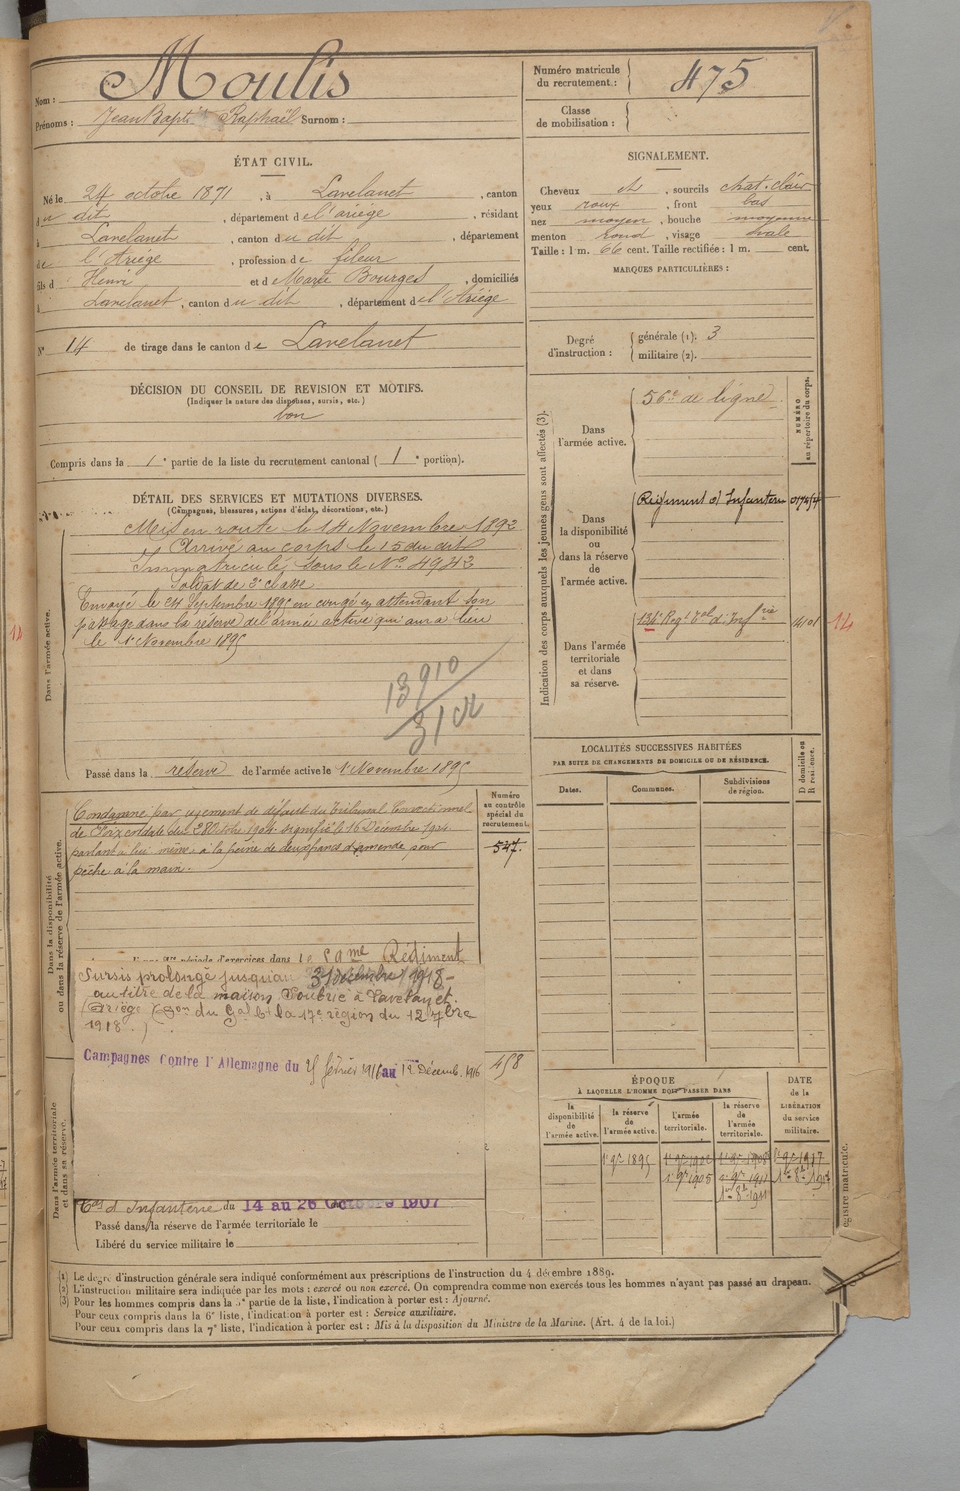 Nom : Moulis
Prénoms : Jean Bapt Raphaël Surnom :
Numéro matricule du recrutement : 475
Classe de mobilisation :
ÉTAT CIVIL.
Né le 24 octobre 1871, à Lavelanet, canton
du dit, département de l'ariége, résidant
à Lavelanet, canton du dit, département
de l'Ariége, profession de fileur
fils d Henri et de Marie Bourges, domiciliés
à Lavelanet, canton du dit, département de l'Ariége
N° 14 de tirage dans le canton de Lavelanet
SIGNALEMENT.
Cheveux et, sourcils chat. clair
yeux roux, front bas
nez moyen, bouche moyenne
menton rond, visage ovale
Taille : 1 m. 66 cent. Taille rectifiée : 1 m. cent.
MARQUES PARTICULIÈRES :
Degré d'instruction : générale (1). 3
militaire (2).
DÉCISION DU CONSEIL DE REVISION ET MOTIFS.
(Indiquer la nature des dispenses, sursis, etc.)
bon
Compris dans la 1e partie de la liste du recrutement cantonal (1e portion).
DÉTAIL DES SERVICES ET MUTATIONS DIVERSES.
(Campagnes, blessures, actions d'éclat, décorations, etc.)
Dans l'armée active.
Mis en route le 14 Novembre 1892
Arrivé au corps le 15 du dit
Immatriculé sous le No 4942
Soldat de 2e classe
Envoyé le 24 Septembre 1895 en congé en attendant son
passage dans la réserve de l'armée active qui aura lieu
le 1 Novembre 1895
13910
Passé dans la réserve de l'armée active le 1 Novembre 1895
Indication des corps auxquels les jeunes gens sont affectés (3).
NUMÉRO au répertoire du corps.
Dans l'armée active.
56e de ligne
Dans la disponibilité ou dans la réserve de l'armée active.
Régiment d'Infanterie
Dans l'armée territoriale et dans sa réserve.
Regt Tal d'Infrie
14
14
LOCALITÉS SUCCESSIVES HABITÉES
PAR SUITE DE CHANGEMENTS DE DOMICILE OU DE RÉSIDENCE.
Dates. Communes. Subdivisions de région. D domicile ou R résidence.
Numéro au contrôle spécial du recrutement.
547.
Dans la disponibilité ou dans la réserve de l'armée active.
Condamné par jugement de défaut du Tribunal Correctionnel
de Foix en date du 28 Octobre 1904 signifié le 16 Décembre 1904
parlant à lui même, à la peine de deux francs d'amende pour
pêche à la main.
période d'exercices dans le Régiment
Sursis prolongé jusqu'au 31 décembre 1918
au titre de la maison à Lavelanet.
(Ariège) (Don du Gal Ct la 17e région du 12 7bre
1918.)
Campagnes contre l'Allemagne du 25 février 1916 au 12 Décemb. 1916
458
Dans l'armée territoriale et dans sa réserve.
d'Infanterie du 14 au 26 Octobre 1907
Passé dans la réserve de l'armée territoriale le
Libéré du service militaire le
ÉPOQUE
À LAQUELLE L'HOMME DOIT PASSER DANS
la disponibilité de l'armée active. la réserve de l'armée active. l'armée territoriale. la réserve de l'armée territoriale.
DATE de la LIBÉRATION du service militaire.
1 9e 1895
1 9e 1905
1er 8b 1911
egistre matricule.
(1) Le degré d'instruction générale sera indiqué conformément aux prescriptions de l'instruction du 4 décembre 1889.
(2) L'instruction militaire sera indiquée par les mots : exercé ou non exercé. On comprendra comme non exercés tous les hommes n'ayant pas passé au drapeau.
(3) Pour les hommes compris dans la 5e partie de la liste, l'indication à porter est : Ajourné.
Pour ceux compris dans la 6e liste, l'indication à porter est : Service auxiliaire.
Pour ceux compris dans la 7e liste, l'indication à porter est : Mis à la disposition du Ministre de la Marine. (Art. 4 de la loi.)